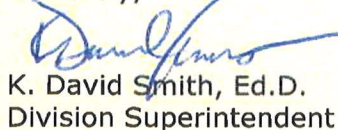 K. David Smith, Ed.D.
Division Superintendent